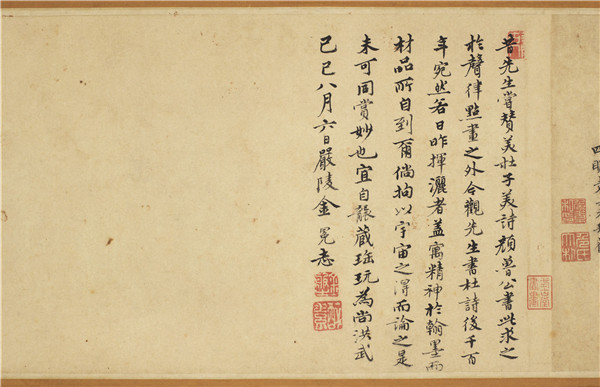 昔先生嘗贊美杜子美詩顏魯公書此求之
於聲律點畫之外今觀先生書杜詩後千百
年宛然若日昨揮灑者蓋寓精神於翰墨而
材品所自到爾倘以宇宙之而論之是
未可同賞妙也宜自藏珤玩為尚洪武
己巳八月六日嚴陵金冕志